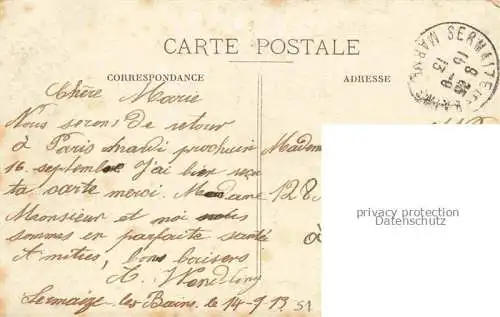 CARTE POSTALE
CORRESPONDANCE
ADRESSE
SERMAIZE
MARNE
Chère Marie
Nous serons de retour
à Paris mardi prochain
16. septembre J'ai bien reçu
ta carte merci. Madame
Monsieur et moi
sommes en parfaite santé
Amitiés, bons baisers
Sermaize les Bains. le 14-9 13
Madem
128
à
privacy protection
Datenschutz